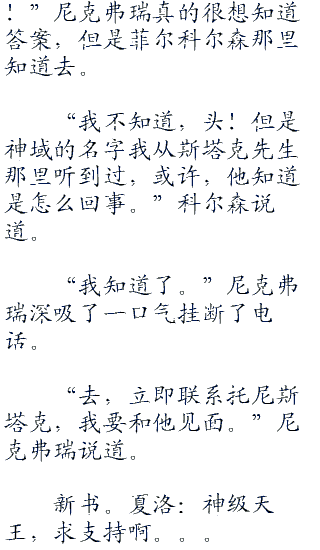 ！”尼克弗瑞真的很想知道
答案，但是菲尔科尔森那里
知道去。
“我不知道，头！但是
神域的名字我从斯塔克先生
那里听到过，或许，他知道
是怎么回事。”科尔森说
道。
“我知道了。”尼克弗
瑞深吸了一口气挂断了电
话。
“去，立即联系托尼斯
塔克，我要和他见面。”尼
克弗瑞说道。
新书。夏洛：神级天
王，求支持啊。。。